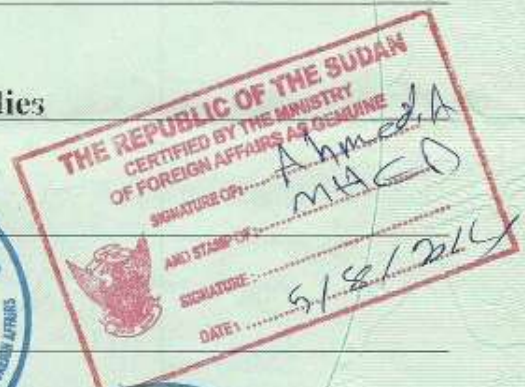 lies
THE REPUBLIC OF THE SUDAN
CERTIFIED BY THE MINISTRY
OF FOREIGN AFFAIRS AS GENUINE
SIGNATURE OF: Ahmed.A
AND STAMP OF: MHCD
SIGNATURE:
DATE: 5/8/2014
FOREIGN AFFAIRS